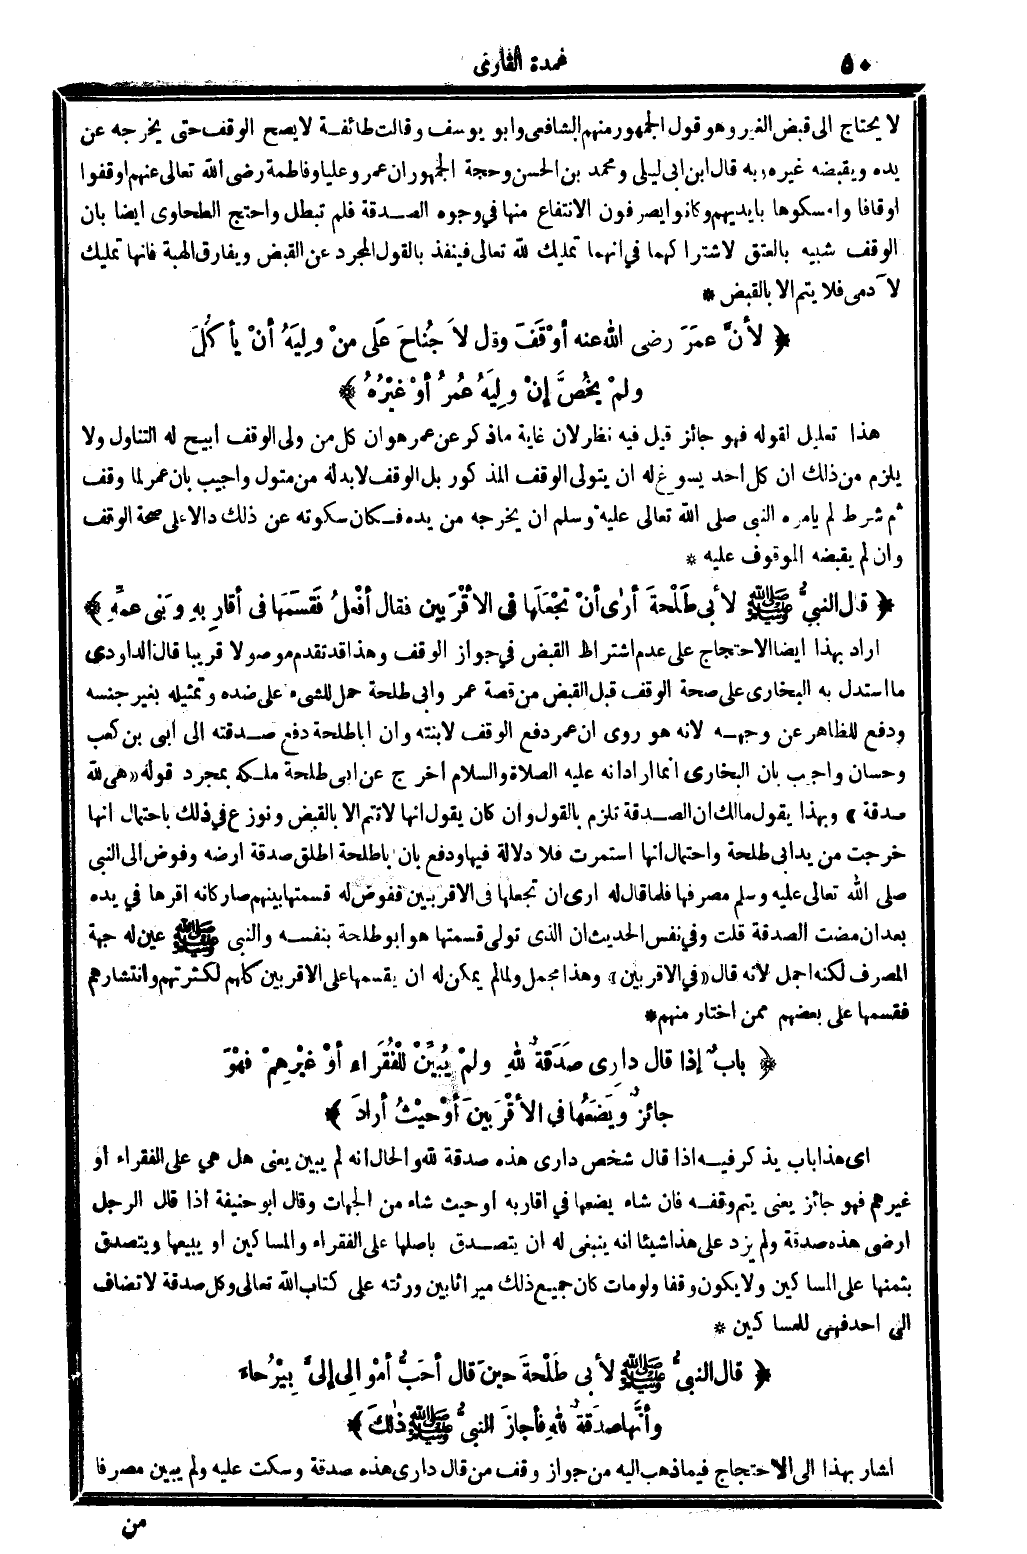 ٥٠
عمدة القارى
لا يحتاج الى قبض الغير وهو قول الجمهور منهم الشافعى وابو يوسف وقالت طائفة لا يصح الوقف حتى يخرجه عن
يده ويقبضه غيره وبه قال ابن ابى ليلى ومحمد بن الحسن وحجة الجمهور ان عمر وعليا وفاطمة رضى الله تعالى عنهم اوقفوا
اوقافا وامسكوها بايديهم وكانوا يصرفون الانتفاع منها فى وجوه الصدقة فلم تبطل واحتج الطحاوى ايضا بان
الوقف شبيه بالعتق لاشتراكهما فى انهما تمليك لله تعالى فينفذ بالقول المجرد عن القبض ويفارق الهبة فانها تمليك
لآدمى فلا يتم الا بالقبض *
﴿ لأنَّ عمَرَ رضى الله عنه أوْقَفَ وقال لا جُناحَ علَى منْ ولِيَهُ أنْ يأكُلَ
ولمْ يخُصَّ إنْ ولِيَهُ عُمرُ أوْ غيْرُهُ ﴾
هذا تعليل لقوله فهو جائز قيل فيه نظر لان غاية ماذكر عن عمر هو ان كل من ولى الوقف ابيح له التناول ولا
يلزم من ذلك ان كل احد يسوغ له ان يتولى الوقف المذكور بل الوقف لابد له من متول واجيب بان عمر لما وقف
ثم شرط لم يامره النبى صلى الله تعالى عليه وسلم ان يخرجه من يده فكان سكوته عن ذلك دالا على صحة الوقف
وان لم يقبضه الموقوف عليه *
﴿ قال النبىُّ ﷺ لأبى طَلْحةَ أرٰى أنْ تجْعَلَها فى الأقْرَبِين فقال أفْعلُ فقَسَمَها فى أقارِبِهِ وبَنى عمِّهِ ﴾
اراد بهذا ايضا الاحتجاج على عدم اشتراط القبض فى جواز الوقف وهذا قد تقدم موصولا قريبا قال الداودى
ما استدل به البخارى على صحة الوقف قبل القبض من قصة عمر وابى طلحة حمل للشىء على ضده وتمثيله بغير جنسه
ودفع للظاهر عن وجهه لانه هو روى ان عمر دفع الوقف لابنته وان اباطلحة دفع صدقته الى ابى بن كعب
وحسان واجيب بان البخارى انما اراد انه عليه الصلاة والسلام اخرج عن ابى طلحة ملكه بمجرد قوله «هى لله
صدقة » وبهذا يقول مالك ان الصدقة تلزم بالقول وان كان يقول انها لا تتم الا بالقبض ونوزع فى ذلك باحتمال انها
خرجت من يد ابى طلحة واحتمال انها استمرت فلا دلالة فيها ودفع بان اباطلحة اطلق صدقة ارضه وفوض الى النبى
صلى الله تعالى عليه وسلم مصرفها فلما قال له ارى ان تجعلها فى الاقربين ففوض له قسمتها بينهم صار كانه اقرها فى يده
بعد ان مضت الصدقة قلت وفى نفس الحديث ان الذى تولى قسمتها هو ابو طلحة بنفسه والنبى ﷺ عين له جهة
المصرف لكنه اجمل لانه قال «فى الاقربين» وهذا مجمل ولما لم يمكن له ان يقسمها على الاقربين كلهم لكثرتهم وانتشارهم
فقسمها على بعضهم ممن اختار منهم *
﴿ بابٌ إذا قال دارِى صَدَقةٌ للهِ ولمْ يُبيِّنْ لِلْفُقَراءِ أوْ غيْرِهِمْ فهْوَ
جائزٌ ويَضَعُها فى الأقْرَبِينَ أوْ حيْثُ أرادَ ﴾
اى هذا باب يذكر فيه اذا قال شخص دارى هذه صدقة لله والحال انه لم يبين يعنى هل هى على الفقراء أو
غيرهم فهو جائز يعنى يتم وقفه فان شاء يضعها فى اقاربه اوحيث شاء من الجهات وقال ابو حنيفة اذا قال الرجل
ارضى هذه صدقة ولم يزد على هذا شيئا انه ينبغى له ان يتصدق باصلها على الفقراء والمساكين او يبيعها ويتصدق
بثمنها على المساكين ولا يكون وقفا ولو مات كان جميع ذلك ميراثا بين ورثته على كتاب الله تعالى وكل صدقة لا تضاف
الى احد فهى للمساكين *
﴿ قال النبىُّ ﷺ لأبى طَلْحةَ حِينَ قال أحَبُّ أمْوالِى إلىَّ بِيْرُحاءَ
وأنَّها صدَقةٌ للهِ فأجازَ النبىُّ ﷺ ذٰلكَ ﴾
اشار بهذا الى الاحتجاج فيما ذهب اليه من جواز وقف من قال دارى هذه صدقة وسكت عليه ولم يبين مصرفا
من